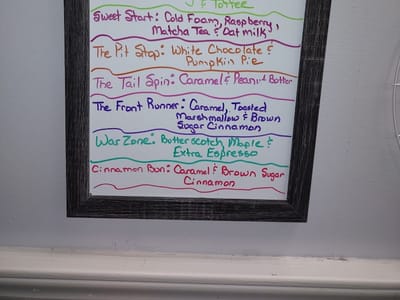 & Toffee
Sweet Start: Cold Foam, Raspberry,
Matcha Tea & Oat milk
The Pit Stop: White Chocolate &
Pumpkin Pie
The Tail Spin: Caramel & Peanut Butter
The Front Runner: Caramel, Toasted
Marshmallow & Brown
Sugar Cinnamon
War Zone: Butterscotch, Maple &
Extra Espresso
Cinnamon Bun: Caramel & Brown Sugar
Cinnamon